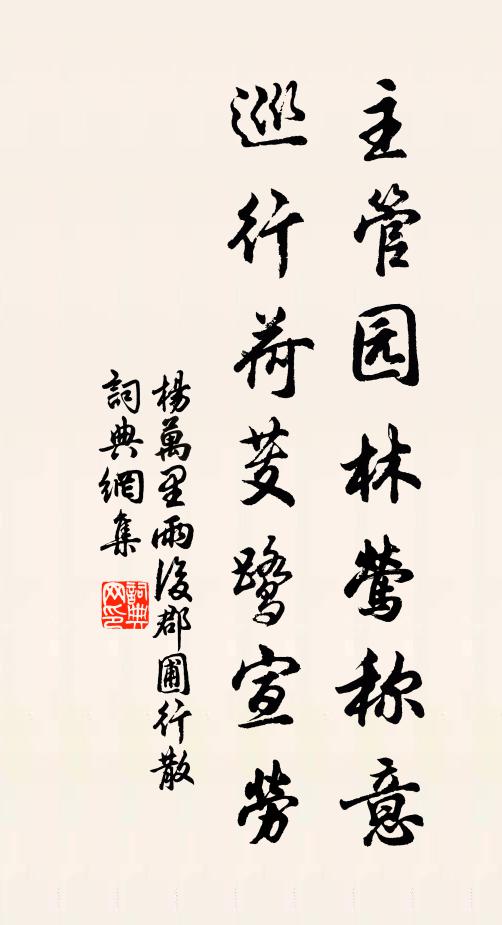 主管园林莺称意
巡行荷芰鹭宣劳
楊萬里雨後郡圃行散
詞典網集
詞典
网印